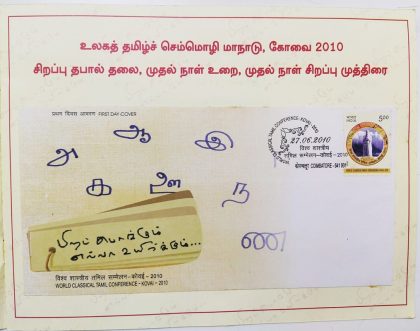 உலகத் தமிழ்ச் செம்மொழி மாநாடு, கோவை 2010
சிறப்பு தபால் தலை, முதல் நாள் உறை, முதல் நாள் சிறப்பு முத்திரை
प्रथम दिवस आवरण FIRST DAY COVER
அ ஆ இ
க ஊ ந
ண
பிறப்பொக்கும்
எல்லா உயிர்க்கும்...
विश्व शास्त्रीय तमिल सम्मेलन - कोवई - 2010
WORLD CLASSICAL TAMIL CONFERENCE - KOVAI - 2010
WORLD CLASSICAL TAMIL CONFERENCE - KOVAI, 2010
27.06.2010
विश्व शास्त्रीय
तमिल सम्मेलन - कोवई - 2010
कोयम्बतूर COIMBATORE - 641 001
भारत INDIA
5.00